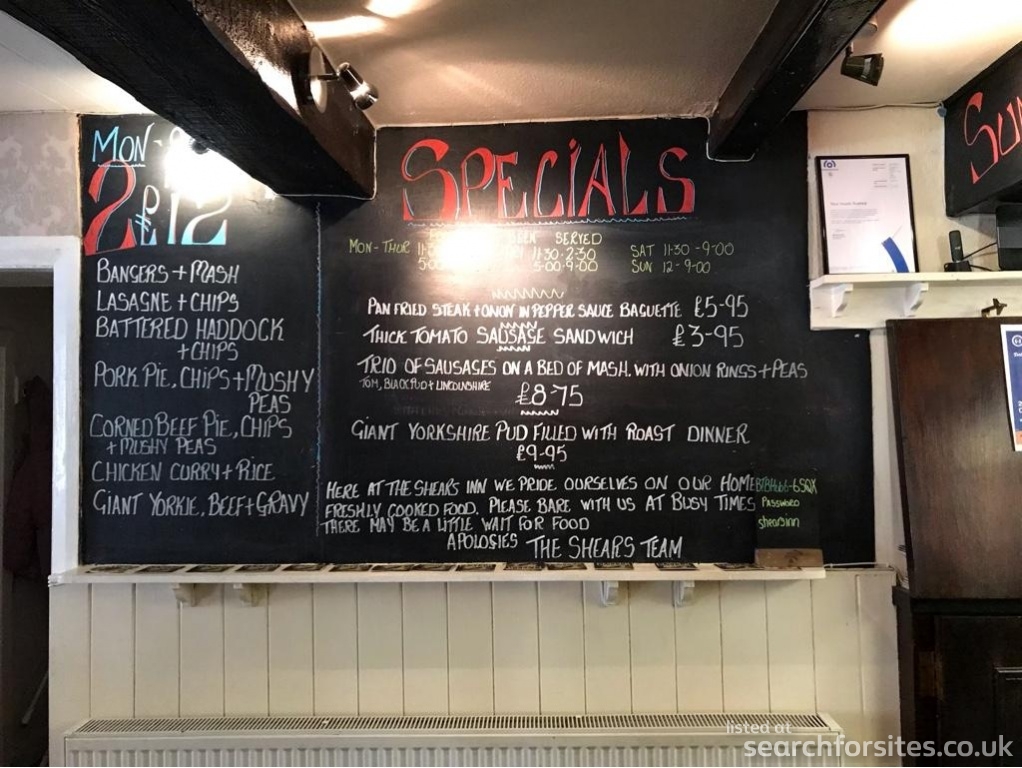 MON -
2 FOR 12
BANGERS + MASH
LASAGNE + CHIPS
BATTERED HADDOCK
+ CHIPS
PORK PIE, CHIPS + MUSHY
PEAS
CORNED BEEF PIE, CHIPS
+ MUSHY PEAS
CHICKEN CURRY + RICE
GIANT YORKIE, BEEF + GRAVY
SPECIALS
SERVED
MON - THUR 11:30-2:30 SAT 11:30 - 9:00
5:00-9:00 SUN 12 - 9:00
PAN FRIED STEAK + ONION IN PEPPER SAUCE BAGUETTE £5-95
THICK TOMATO SAUSAGE SANDWICH £3-95
TRIO OF SAUSAGES ON A BED OF MASH, WITH ONION RINGS + PEAS
TOM, BLACK PUD + LINCOLNSHIRE
£8-75
GIANT YORKSHIRE PUD FILLED WITH ROAST DINNER
£9-95
HERE AT THE SHEARS INN WE PRIDE OURSELVES ON OUR HOME
FRESHLY COOKED FOOD. PLEASE BARE WITH US AT BUSY TIMES
THERE MAY BE A LITTLE WAIT FOR FOOD
APOLOGIES THE SHEARS TEAM
PASSWORD
shearsinn
SUN
listed at
searchforsites.co.uk